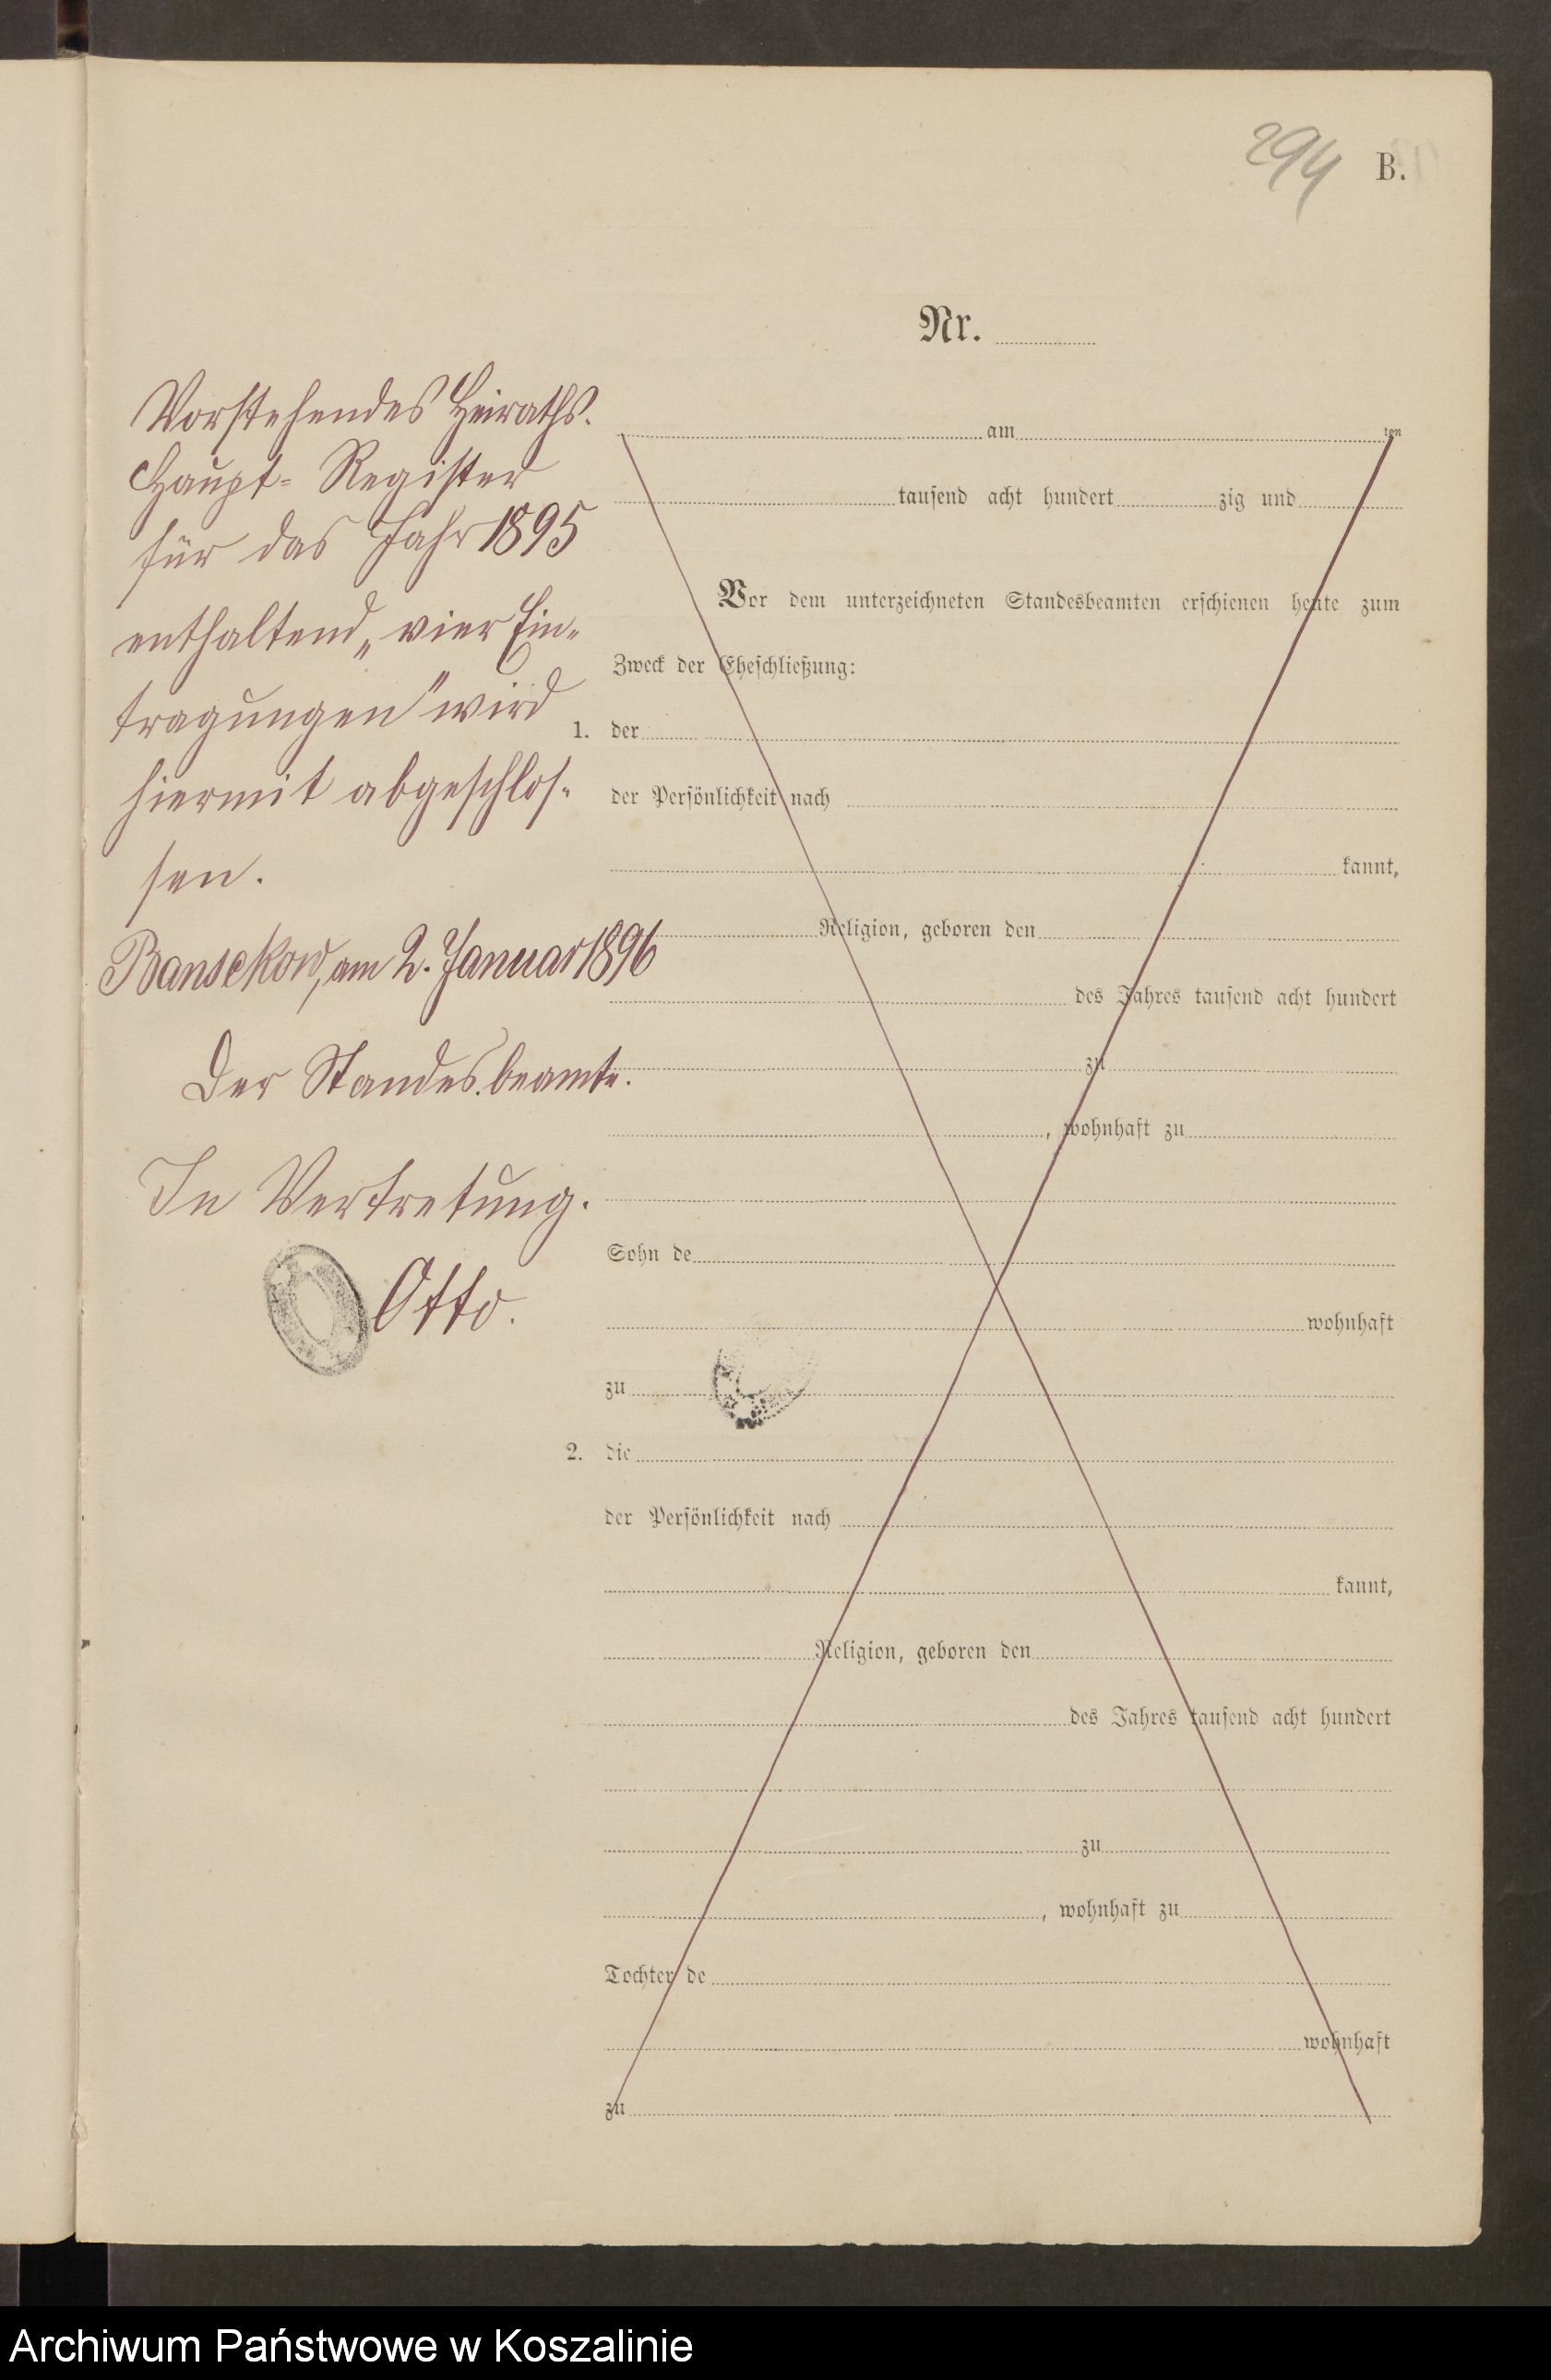 294 B.
Nr.
Vorstehendes Heiraths-
Haupt-Register
für das Jahr 1895
enthaltend „vier Ein-
tragungen" wird
hiermit abgeschlos-
sen.
Bansekow, am 2. Januar 1896
Der Standesbeamte.
In Vertretung.
Otto.
am ten
tausend acht hundert zig und
Vor dem unterzeichneten Standesbeamten erschienen heute zum
Zweck der Eheschließung:
1. der
der Persönlichkeit nach
kannt,
Religion, geboren den
des Jahres tausend acht hundert
zu
, wohnhaft zu
Sohn de
wohnhaft
zu
2. die
der Persönlichkeit nach
kannt,
Religion, geboren den
des Jahres tausend acht hundert
zu
, wohnhaft zu
Tochter de
wohnhaft
zu
Archiwum Państwowe w Koszalinie